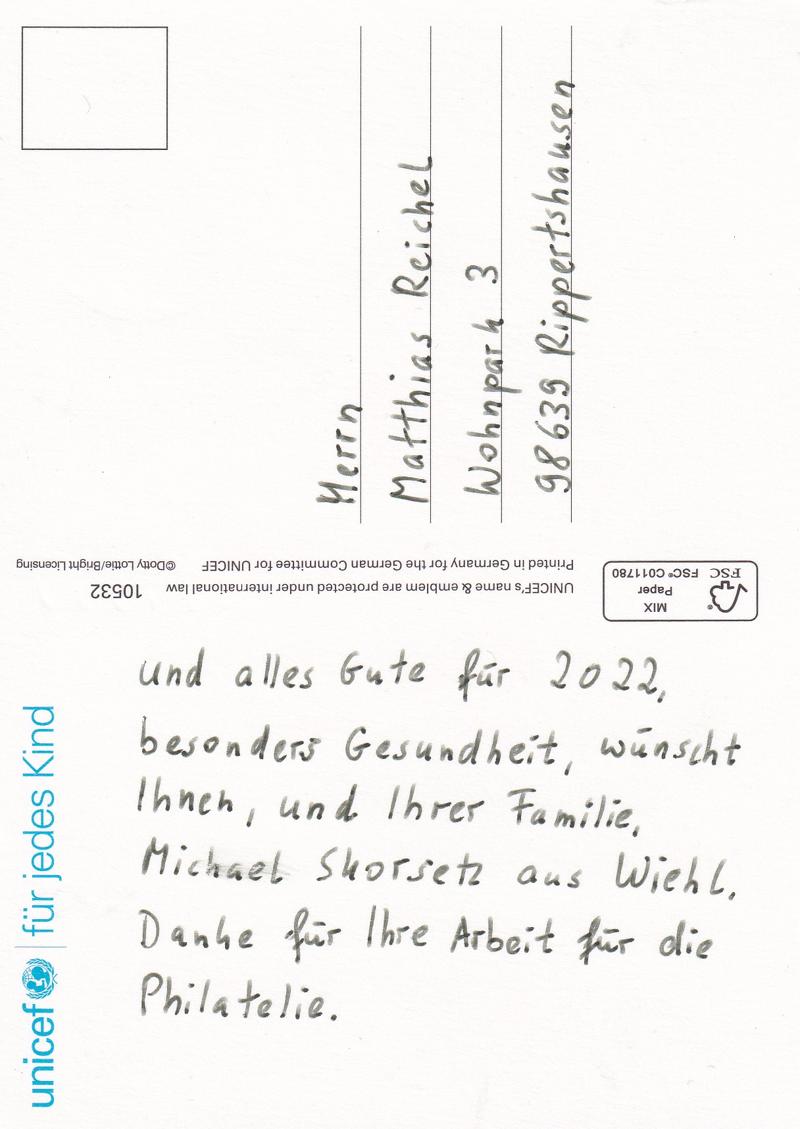 Herrn
Matthias Reichel
Wohnpark 3
98639 Rippertshausen
©Dotty Lottie/Bright Licensing
Printed in Germany for the German Committee for UNICEF
10532
UNICEF's name & emblem are protected under international law
MIX
Paper
FSC
FSC® C011780
unicef | für jedes Kind
und alles Gute für 2022,
besonders Gesundheit, wünscht
Ihnen, und Ihrer Familie,
Michael Skorsetz aus Wiehl.
Danke für Ihre Arbeit für die
Philatelie.